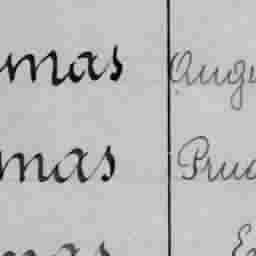 mas Augu
mas Prud
mas E